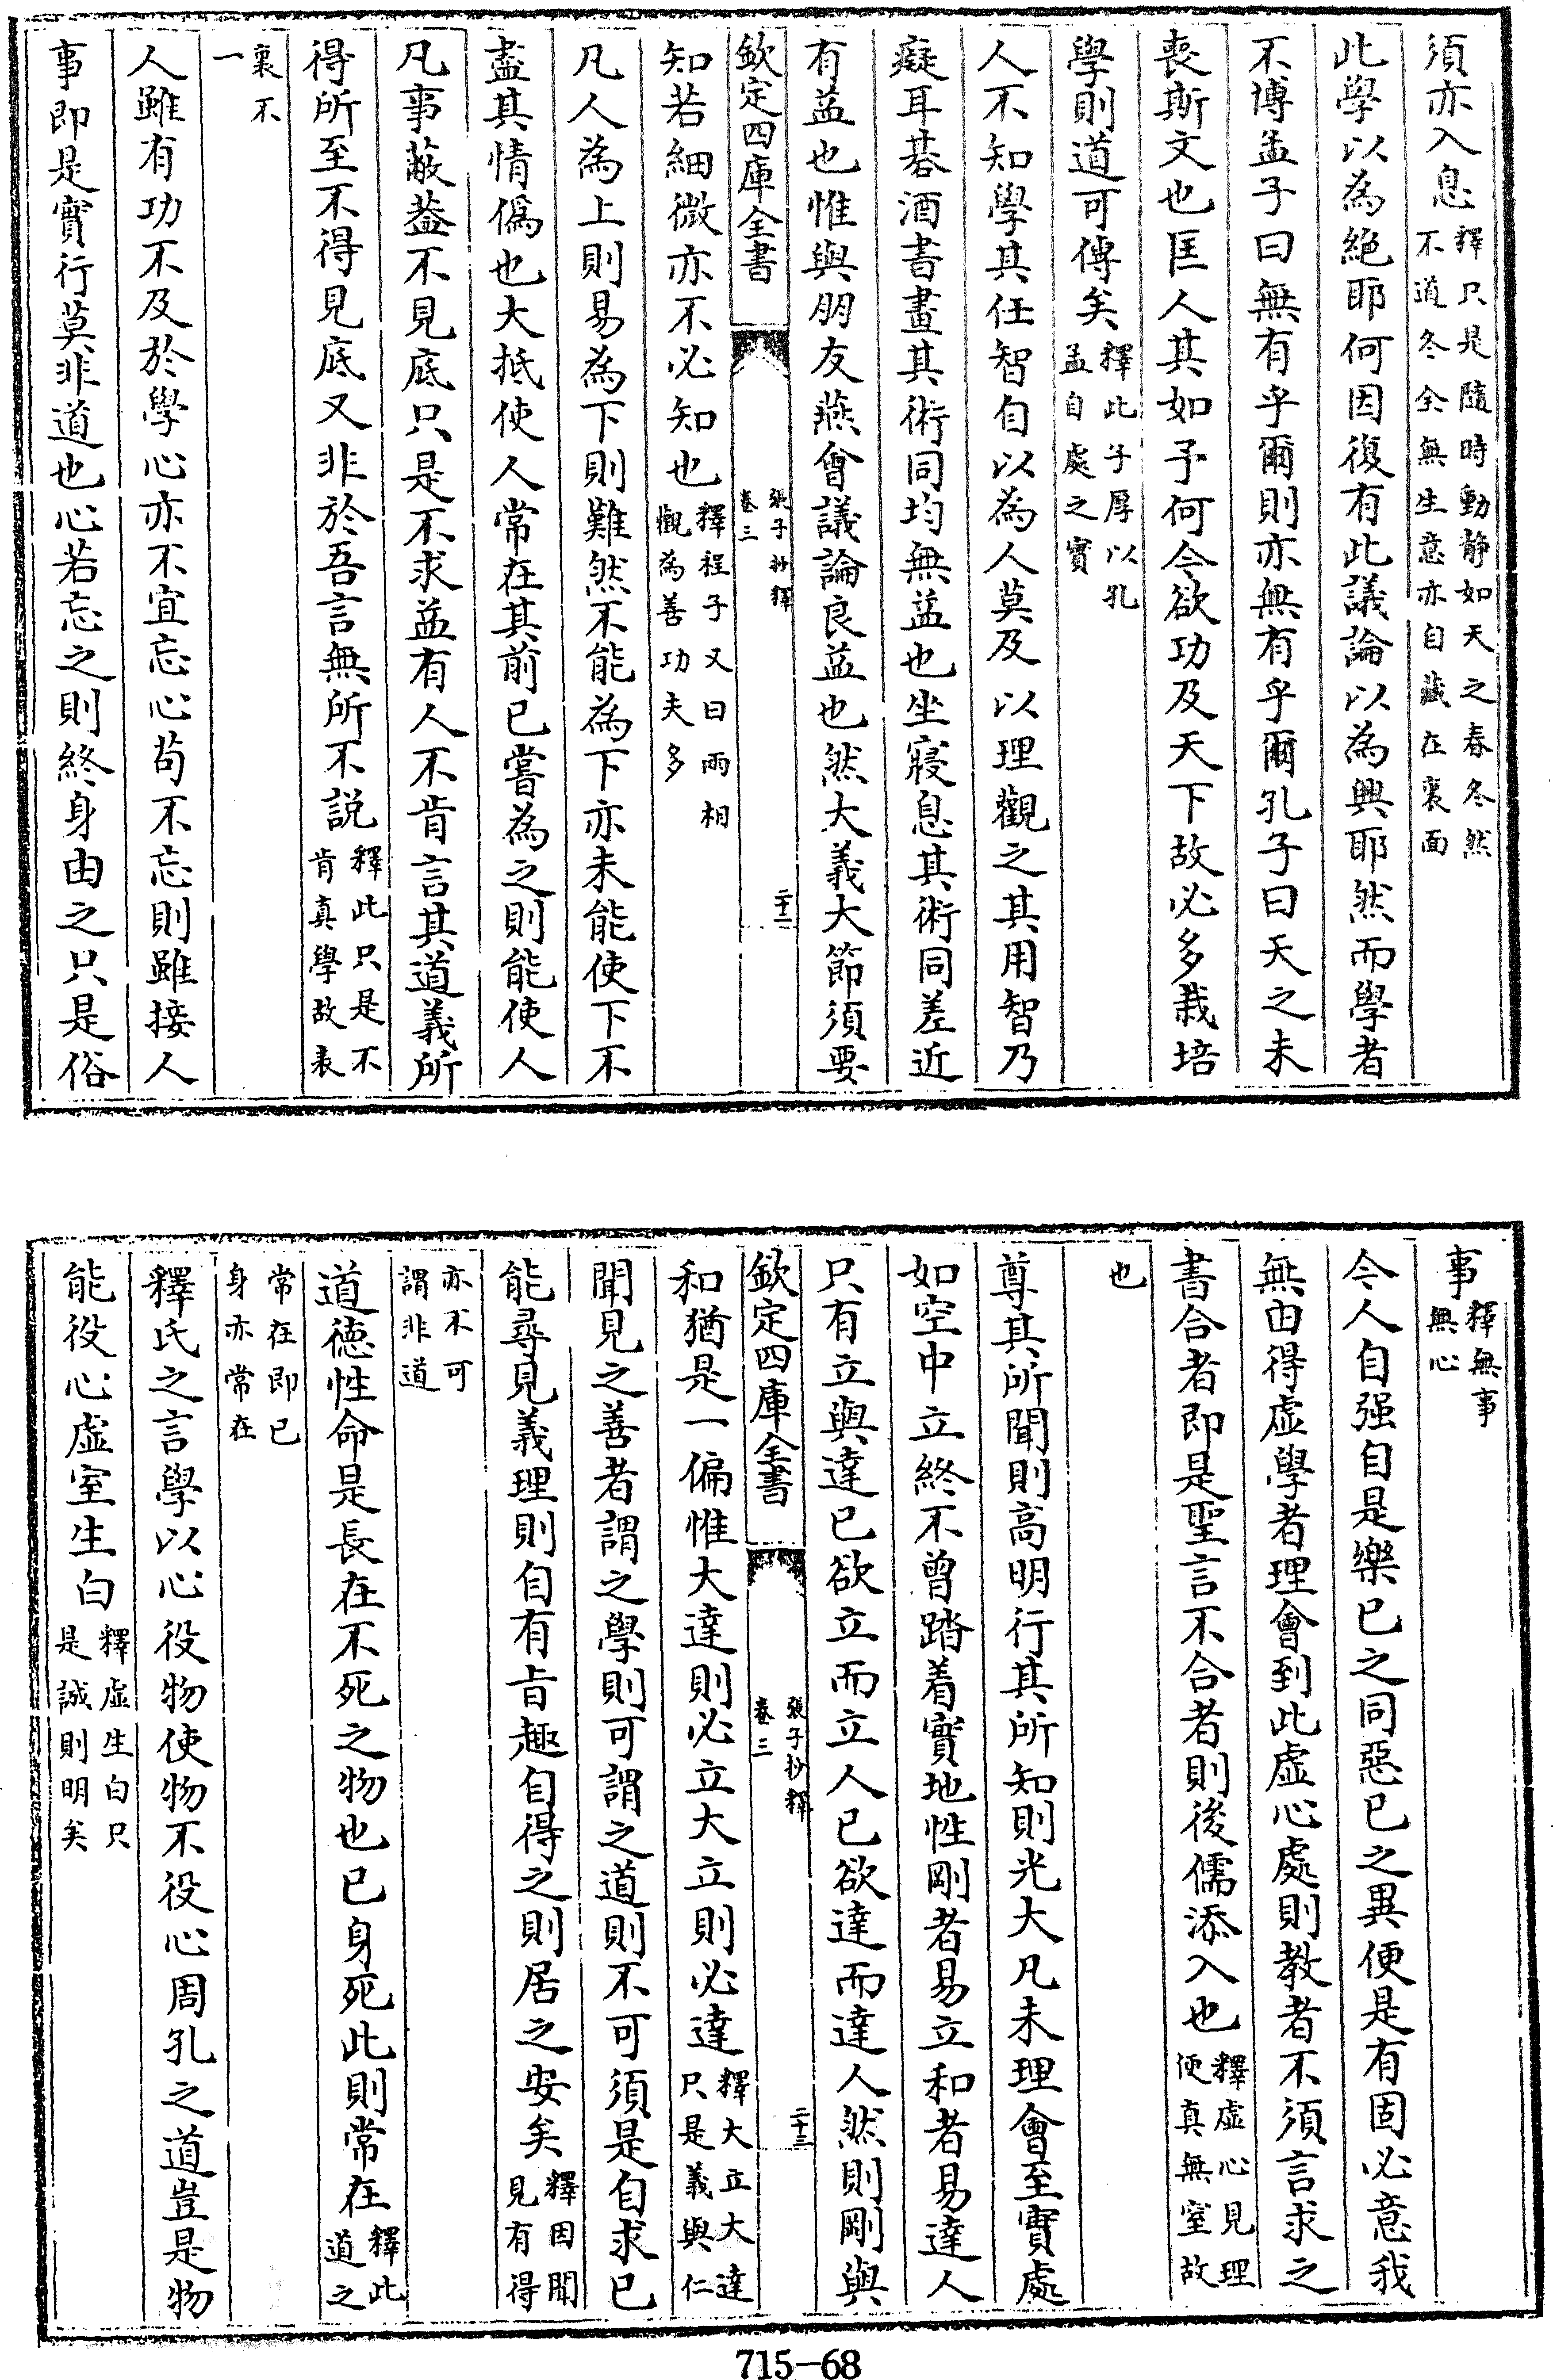 須亦入息釋只是隨時動靜如天之春冬然不道冬全無生意亦自藏在裏面
此學以為絕耶何因復有此議論以為興耶然而學者
不博孟子曰無有乎爾則亦無有乎爾孔子曰天之未
喪斯文也匡人其如予何今欲功及天下故必多栽培
學則道可傳矣釋此子厚以孔孟自處之實
人不知學其任智自以為人莫及以理觀之其用智乃
癡耳碁酒書畫其術同均無益也坐寢息其術同差近
有益也惟與朋友燕會議論良益也然大義大節須要
欽定四庫全書 張子抄釋卷三 二十二
知若細微亦不必知也釋程子又曰兩相觀為善功夫多
凡人為上則易為下則難然不能為下亦未能使下不
盡其情偽也大抵使人常在其前已嘗為之則能使人
凡事蔽葢不見底只是不求益有人不肯言其道義所
得所至不得見底又非於吾言無所不説釋此只是不肯真學故表
裏不一
人雖有功不及於學心亦不宜忘心苟不忘則雖接人
事即是實行莫非道也心若忘之則終身由之只是俗
事釋無事無心
今人自强自是樂已之同惡已之異便是有固必意我
無由得虛學者理會到此虛心處則教者不須言求之
書合者即是聖言不合者則後儒添入也釋虛心見理便真無窒故
也
尊其所聞則高明行其所知則光大凡未理會至實處
如空中立終不曾踏着實地性剛者易立和者易達人
只有立與達已欲立而立人已欲達而達人然則剛與
欽定四庫全書 張子抄釋卷三 二十三
和猶是一偏惟大達則必立大立則必達釋大立大達只是義與仁
聞見之善者謂之學則可謂之道則不可須是自求已
能尋見義理則自有旨趣自得之則居之安矣釋因聞見有得
亦不可謂非道
道德性命是長在不死之物也已身死此則常在釋此道之
常在即已身亦常在
釋氏之言學以心役物使物不役心周孔之道豈是物
能役心虛室生白釋虛生白只是誠則明矣
715-68